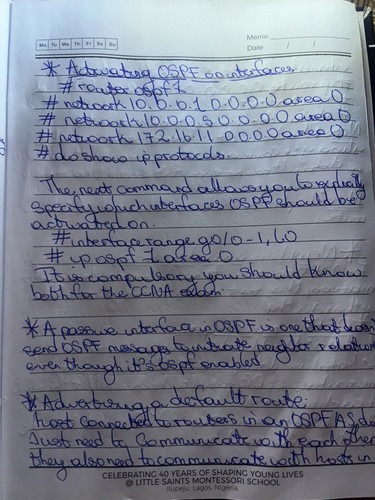 Memo.
Mo Tu We Th Fr Sa Su
Date / /
* Activating OSPF on interfaces
# router ospf 1
# network 10.0.0.1 0.0.0.0 area 0
# network 10.0.0.5 0.0.0.0 area 0
# network 172.16.1.1 0.0.0.0 area 0
# do show ip protocols
The next command allows you to explicitly
specify which interfaces OSPF should be
activated on.
# interface range g0/0-1, l0
# ip ospf 1 area 0
It is compulsory you should know
both for the CCNA exam
* A passive interface in OSPF is one that doesn't
send OSPF messages to initiate neighbor relation
even though it's ospf enabled
* Advertising a default route:
host connected to routers in an OSPF AS
Just need to communicate with each other
they also need to communicate with hosts in
CELEBRATING 40 YEARS OF SHAPING YOUNG LIVES
@ LITTLE SAINTS MONTESSORI SCHOOL
Ilupeju, Lagos, Nigeria.